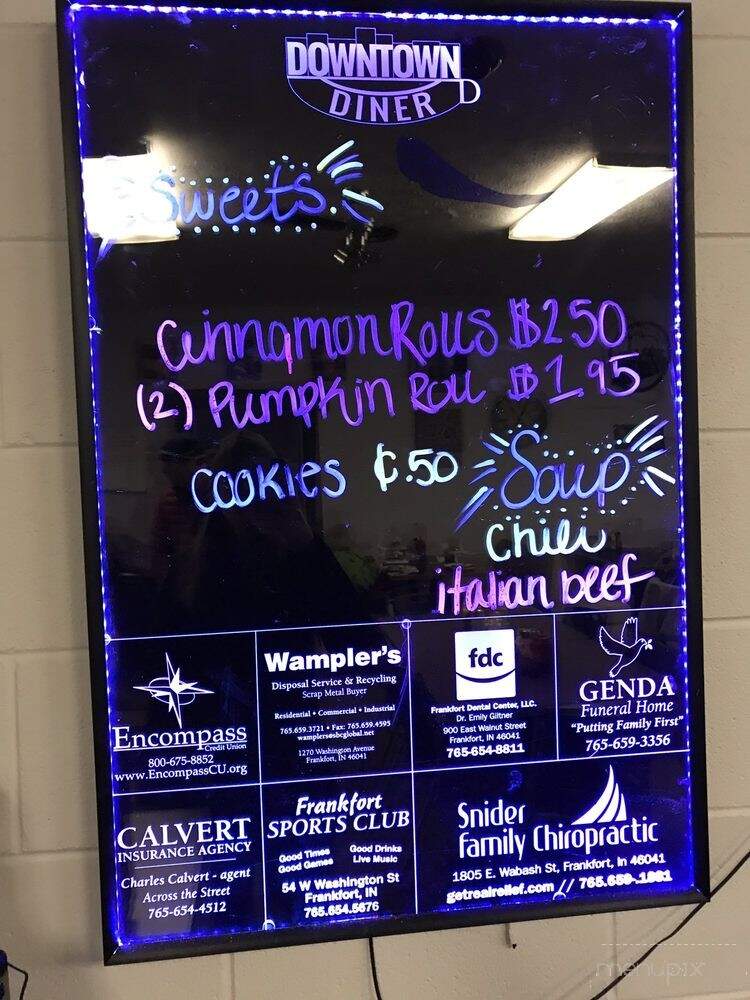 DOWNTOWN
DINER
Sweets
Cinnamon Rolls $2.50
(2) Pumpkin Roll $1.95
COOKIES ¢.50
Soup
Chili
italian beef
Encompass
Credit Union
800-675-8852
www.EncompassCU.org
Wampler's
Disposal Service & Recycling
Scrap Metal Buyer
Residential • Commercial • Industrial
765.659.3721 • Fax: 765.659.4595
wamplers@sbcglobal.net
1270 Washington Avenue
Frankfort, IN 46041
fdc
Frankfort Dental Center, LLC.
Dr. Emily Giltner
900 East Walnut Street
Frankfort, IN 46041
765-654-8811
GENDA
Funeral Home
"Putting Family First"
765-659-3356
CALVERT
INSURANCE AGENCY
Charles Calvert - agent
Across the Street
765-654-4512
Frankfort
SPORTS CLUB
Good Times Good Drinks
Good Games Live Music
54 W Washington St
Frankfort, IN
765.654.5576
Snider
family Chiropractic
1805 E. Wabash St, Frankfort, In 46041
getrealrelief.com // 765.659.1881
menupix